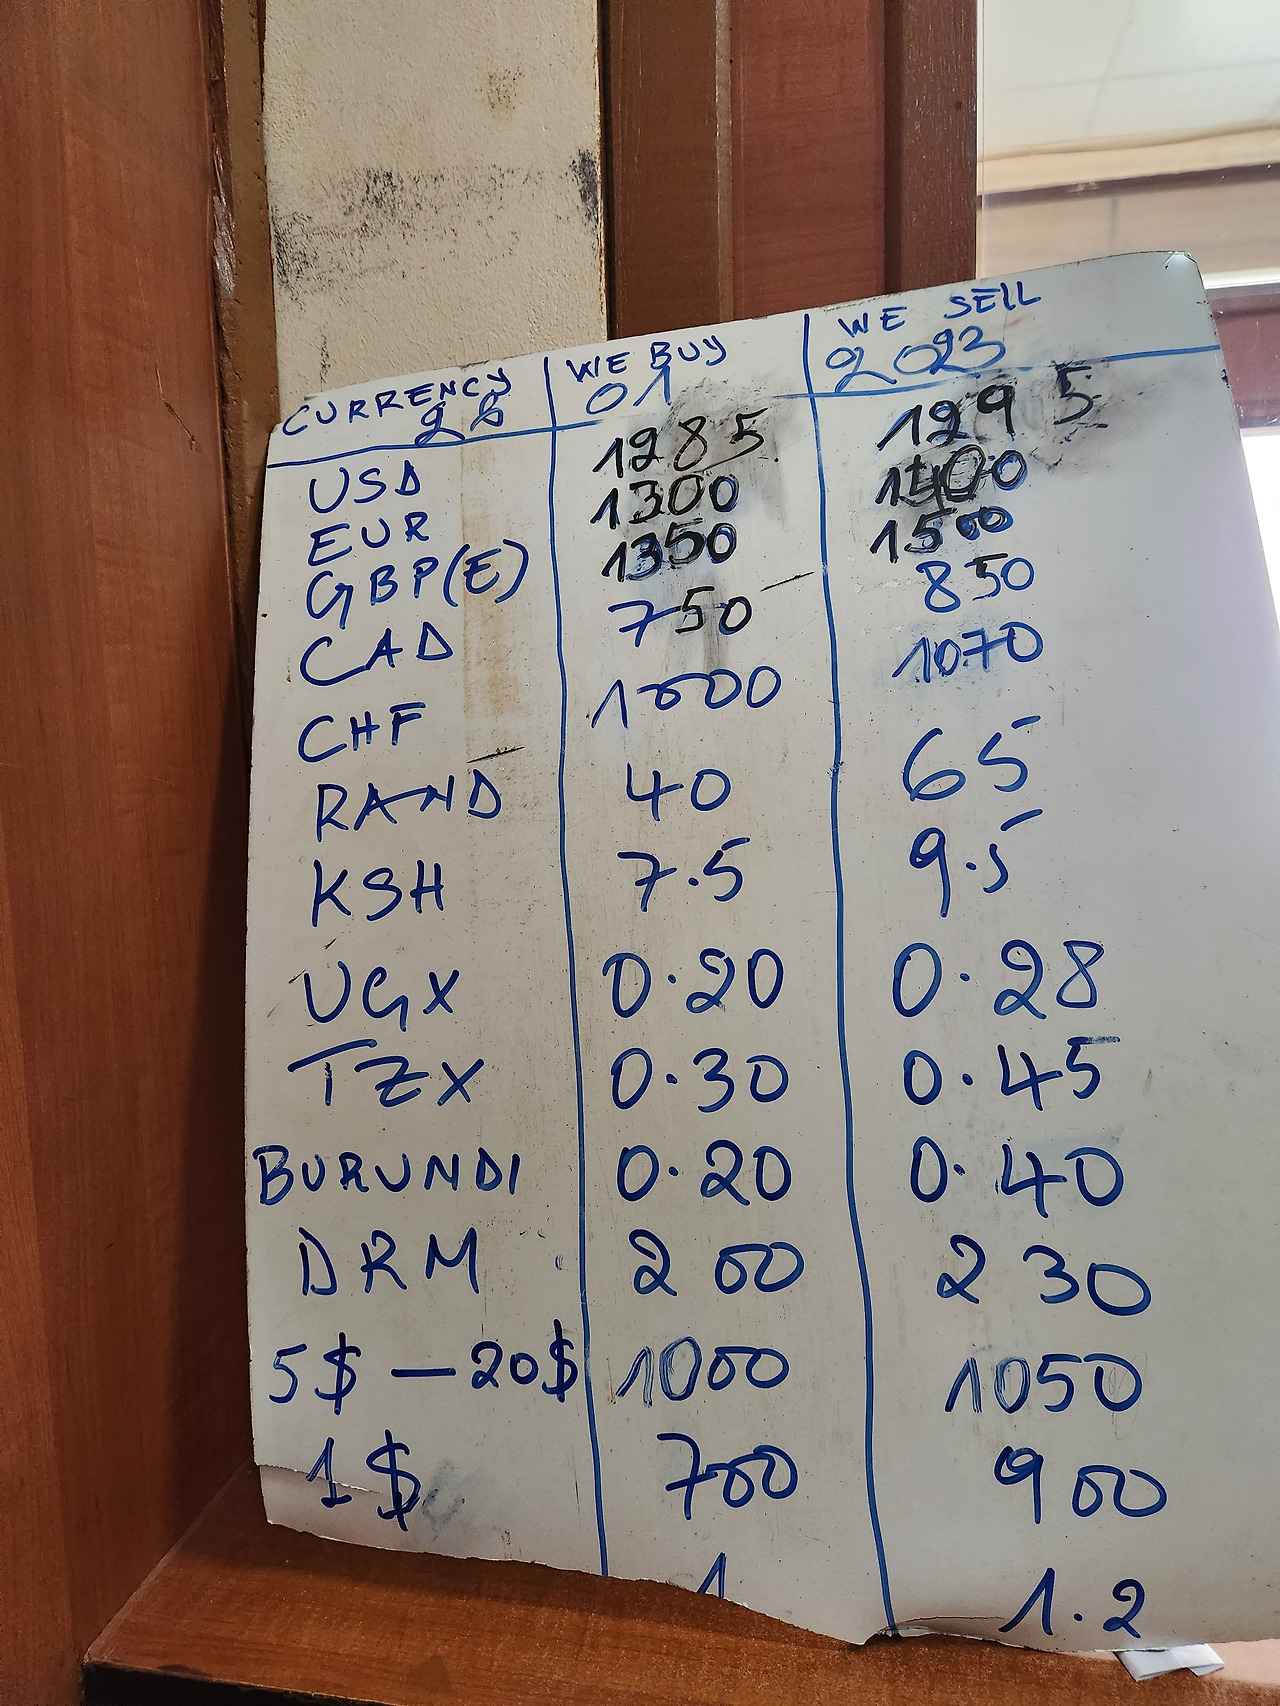 CURRENCY WE BUY WE SELL
01 2023
USD 1285 1295
EUR 1300 1400
GBP(E) 1350 1500
CAD 750 850
CHF 1000 1070
RAND 40 65
KSH 7.5 9.5
UGX 0.20 0.28
TZX 0.30 0.45
BURUNDI 0.20 0.40
DRM 200 230
5$ — 20$ 1000 1050
1$ 700 900
1 1.2